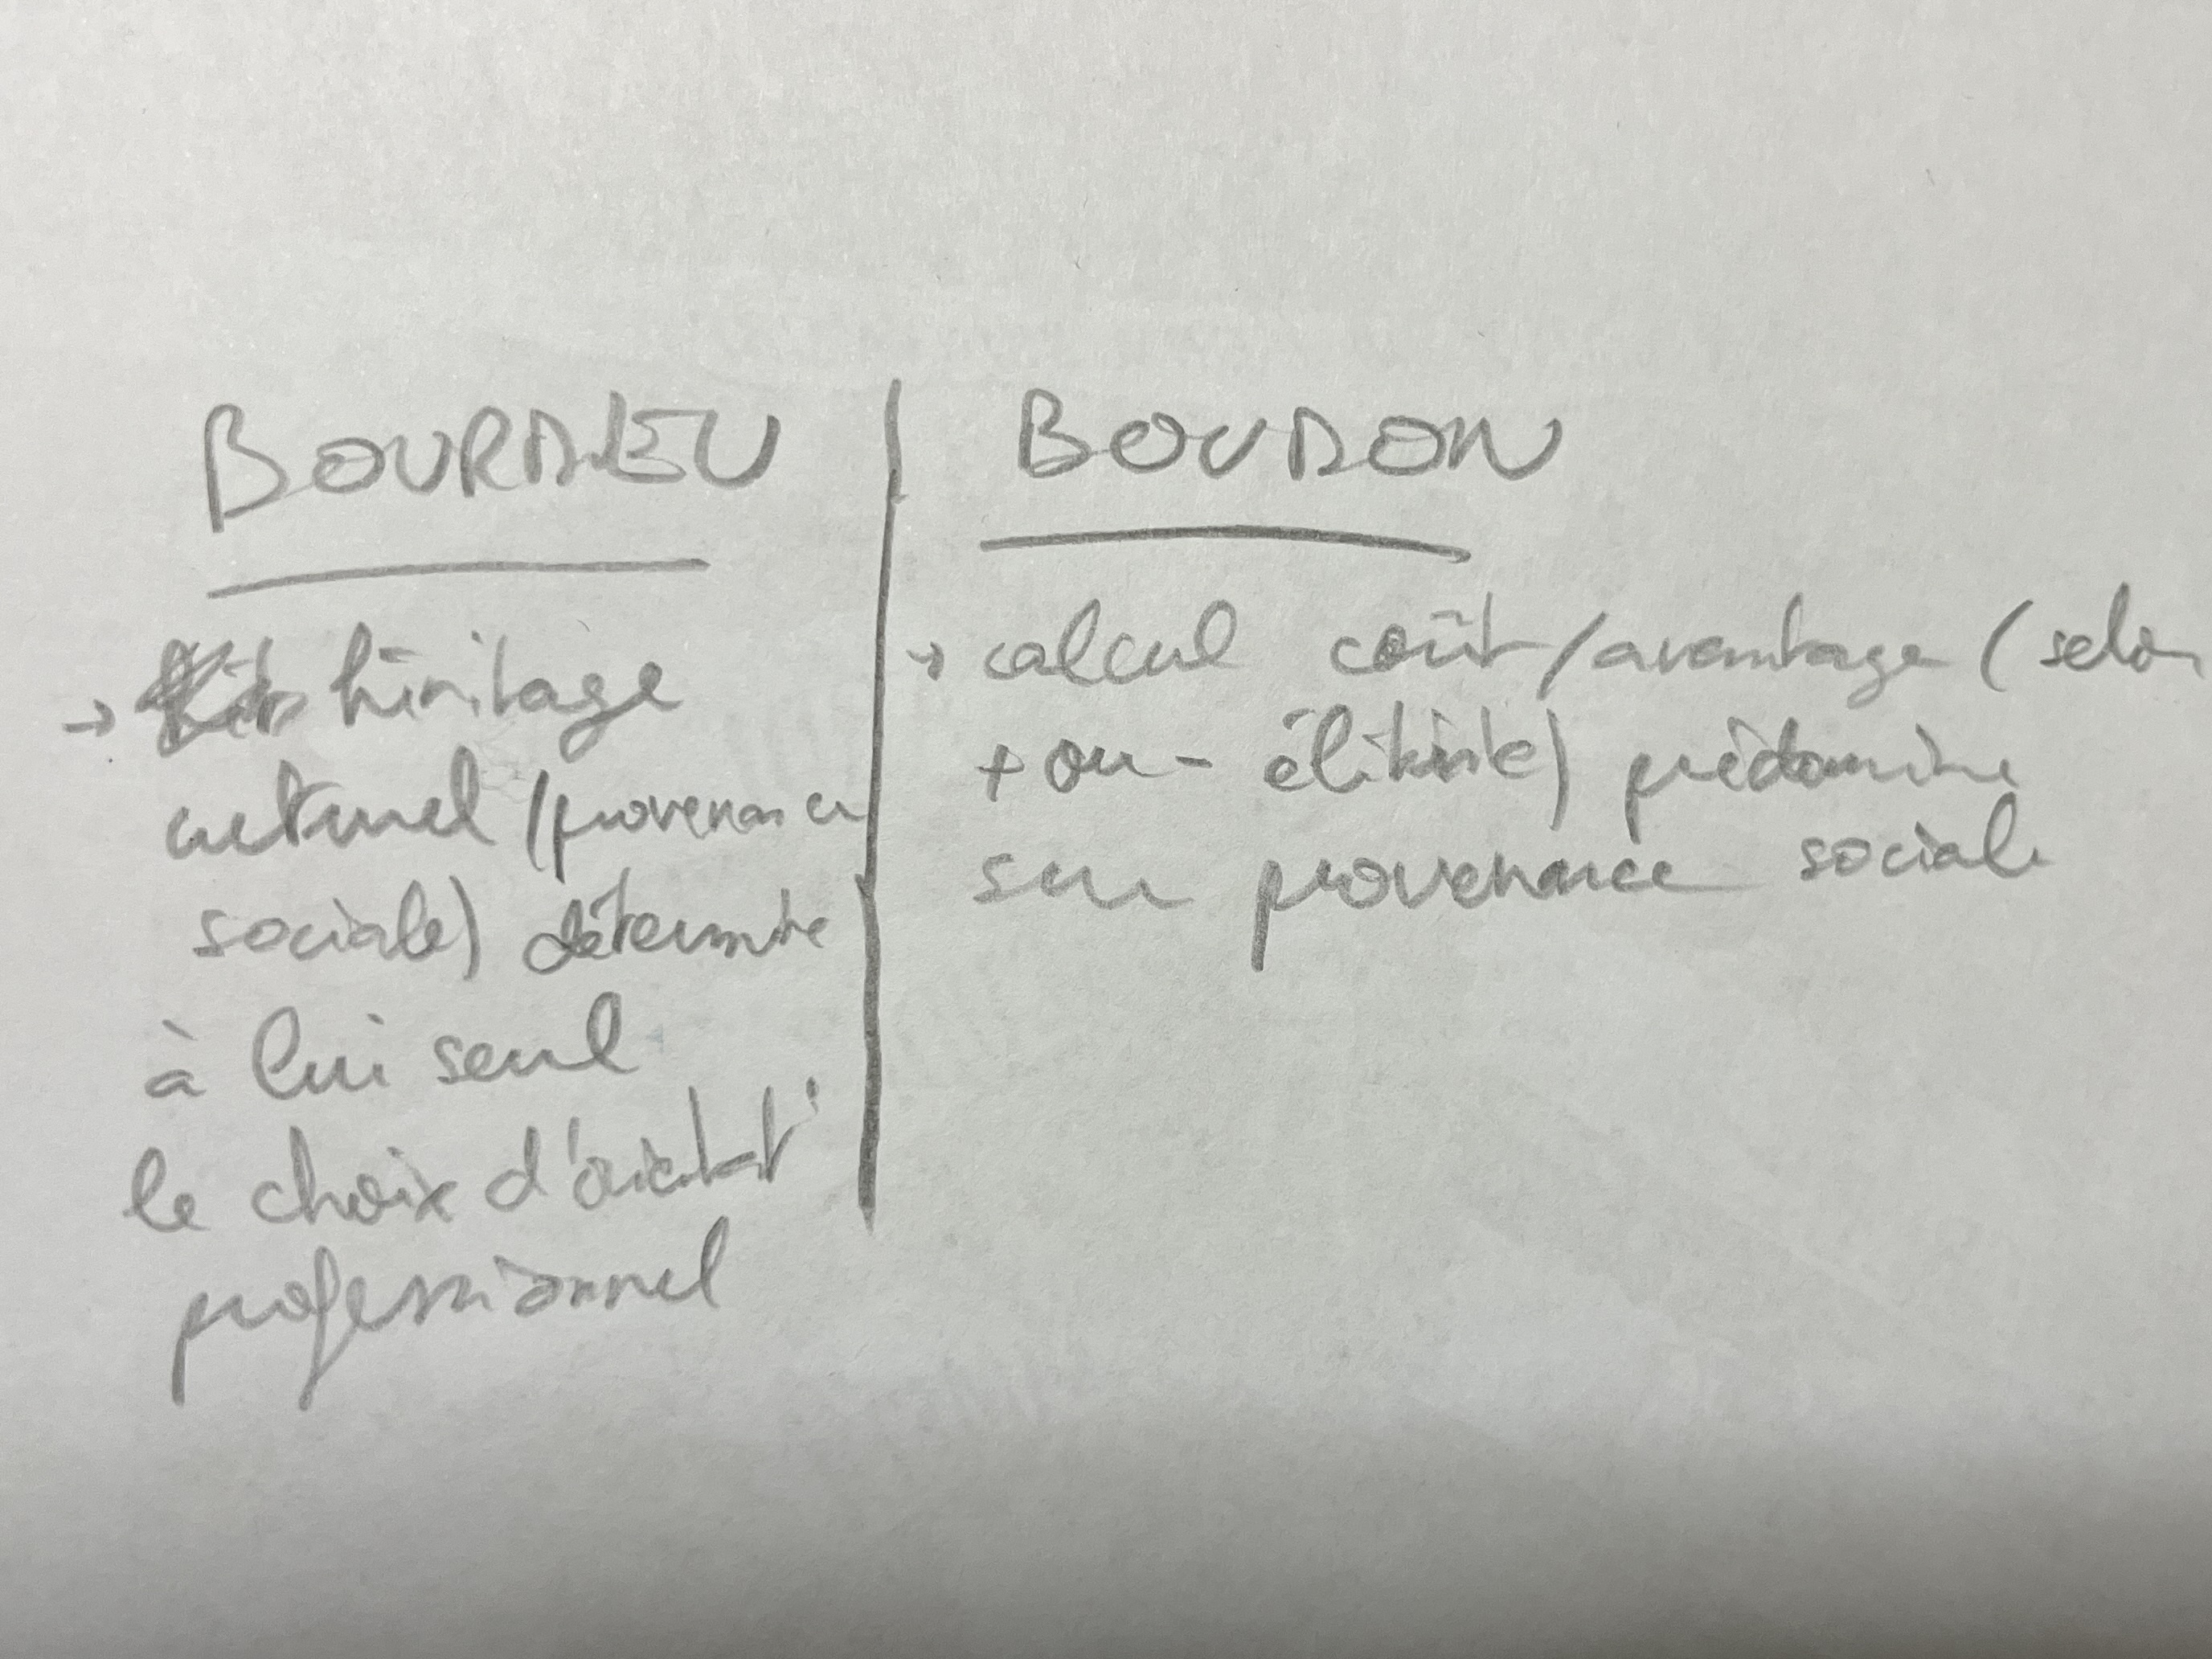 BOURDIEU
→ héritage
culturel (provenance
sociale) détermine
à lui seul
le choix d'orientat°
professionnel
BOUDON
→ calcul coût/avantage (selon
+ ou - élitiste) prédomine
sur provenance sociale